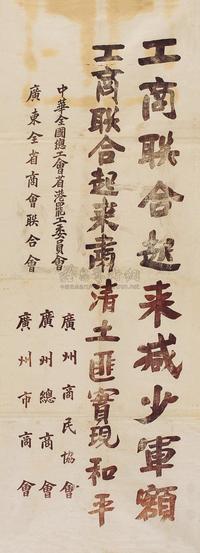 工商联合起来减少軍額
工商联合起来肅清土匪實現和平
中華全國總工會省港罷工委員會
廣東全省商會联合會
廣州商民協會
廣州總商會
廣州市商會